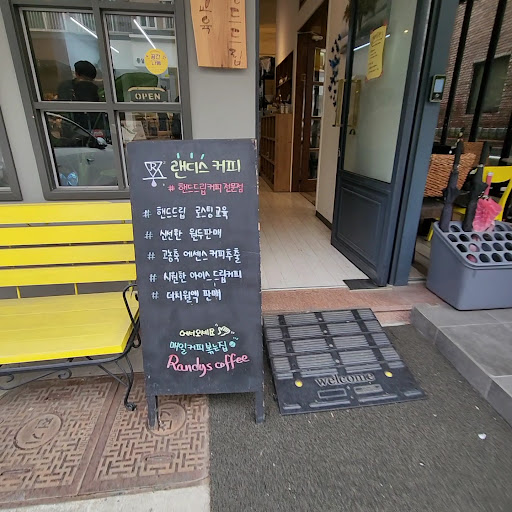 OPEN
랜디스 커피
# 핸드드립커피 전문점
# 핸드드립 로스팅교육
# 신선한 원두판매
# 고농축 에센스커피추출
# 시원한 아이스드립커피
# 더치원액 판매
어서오세요
매일커피볶는집
Randys coffee
welcome